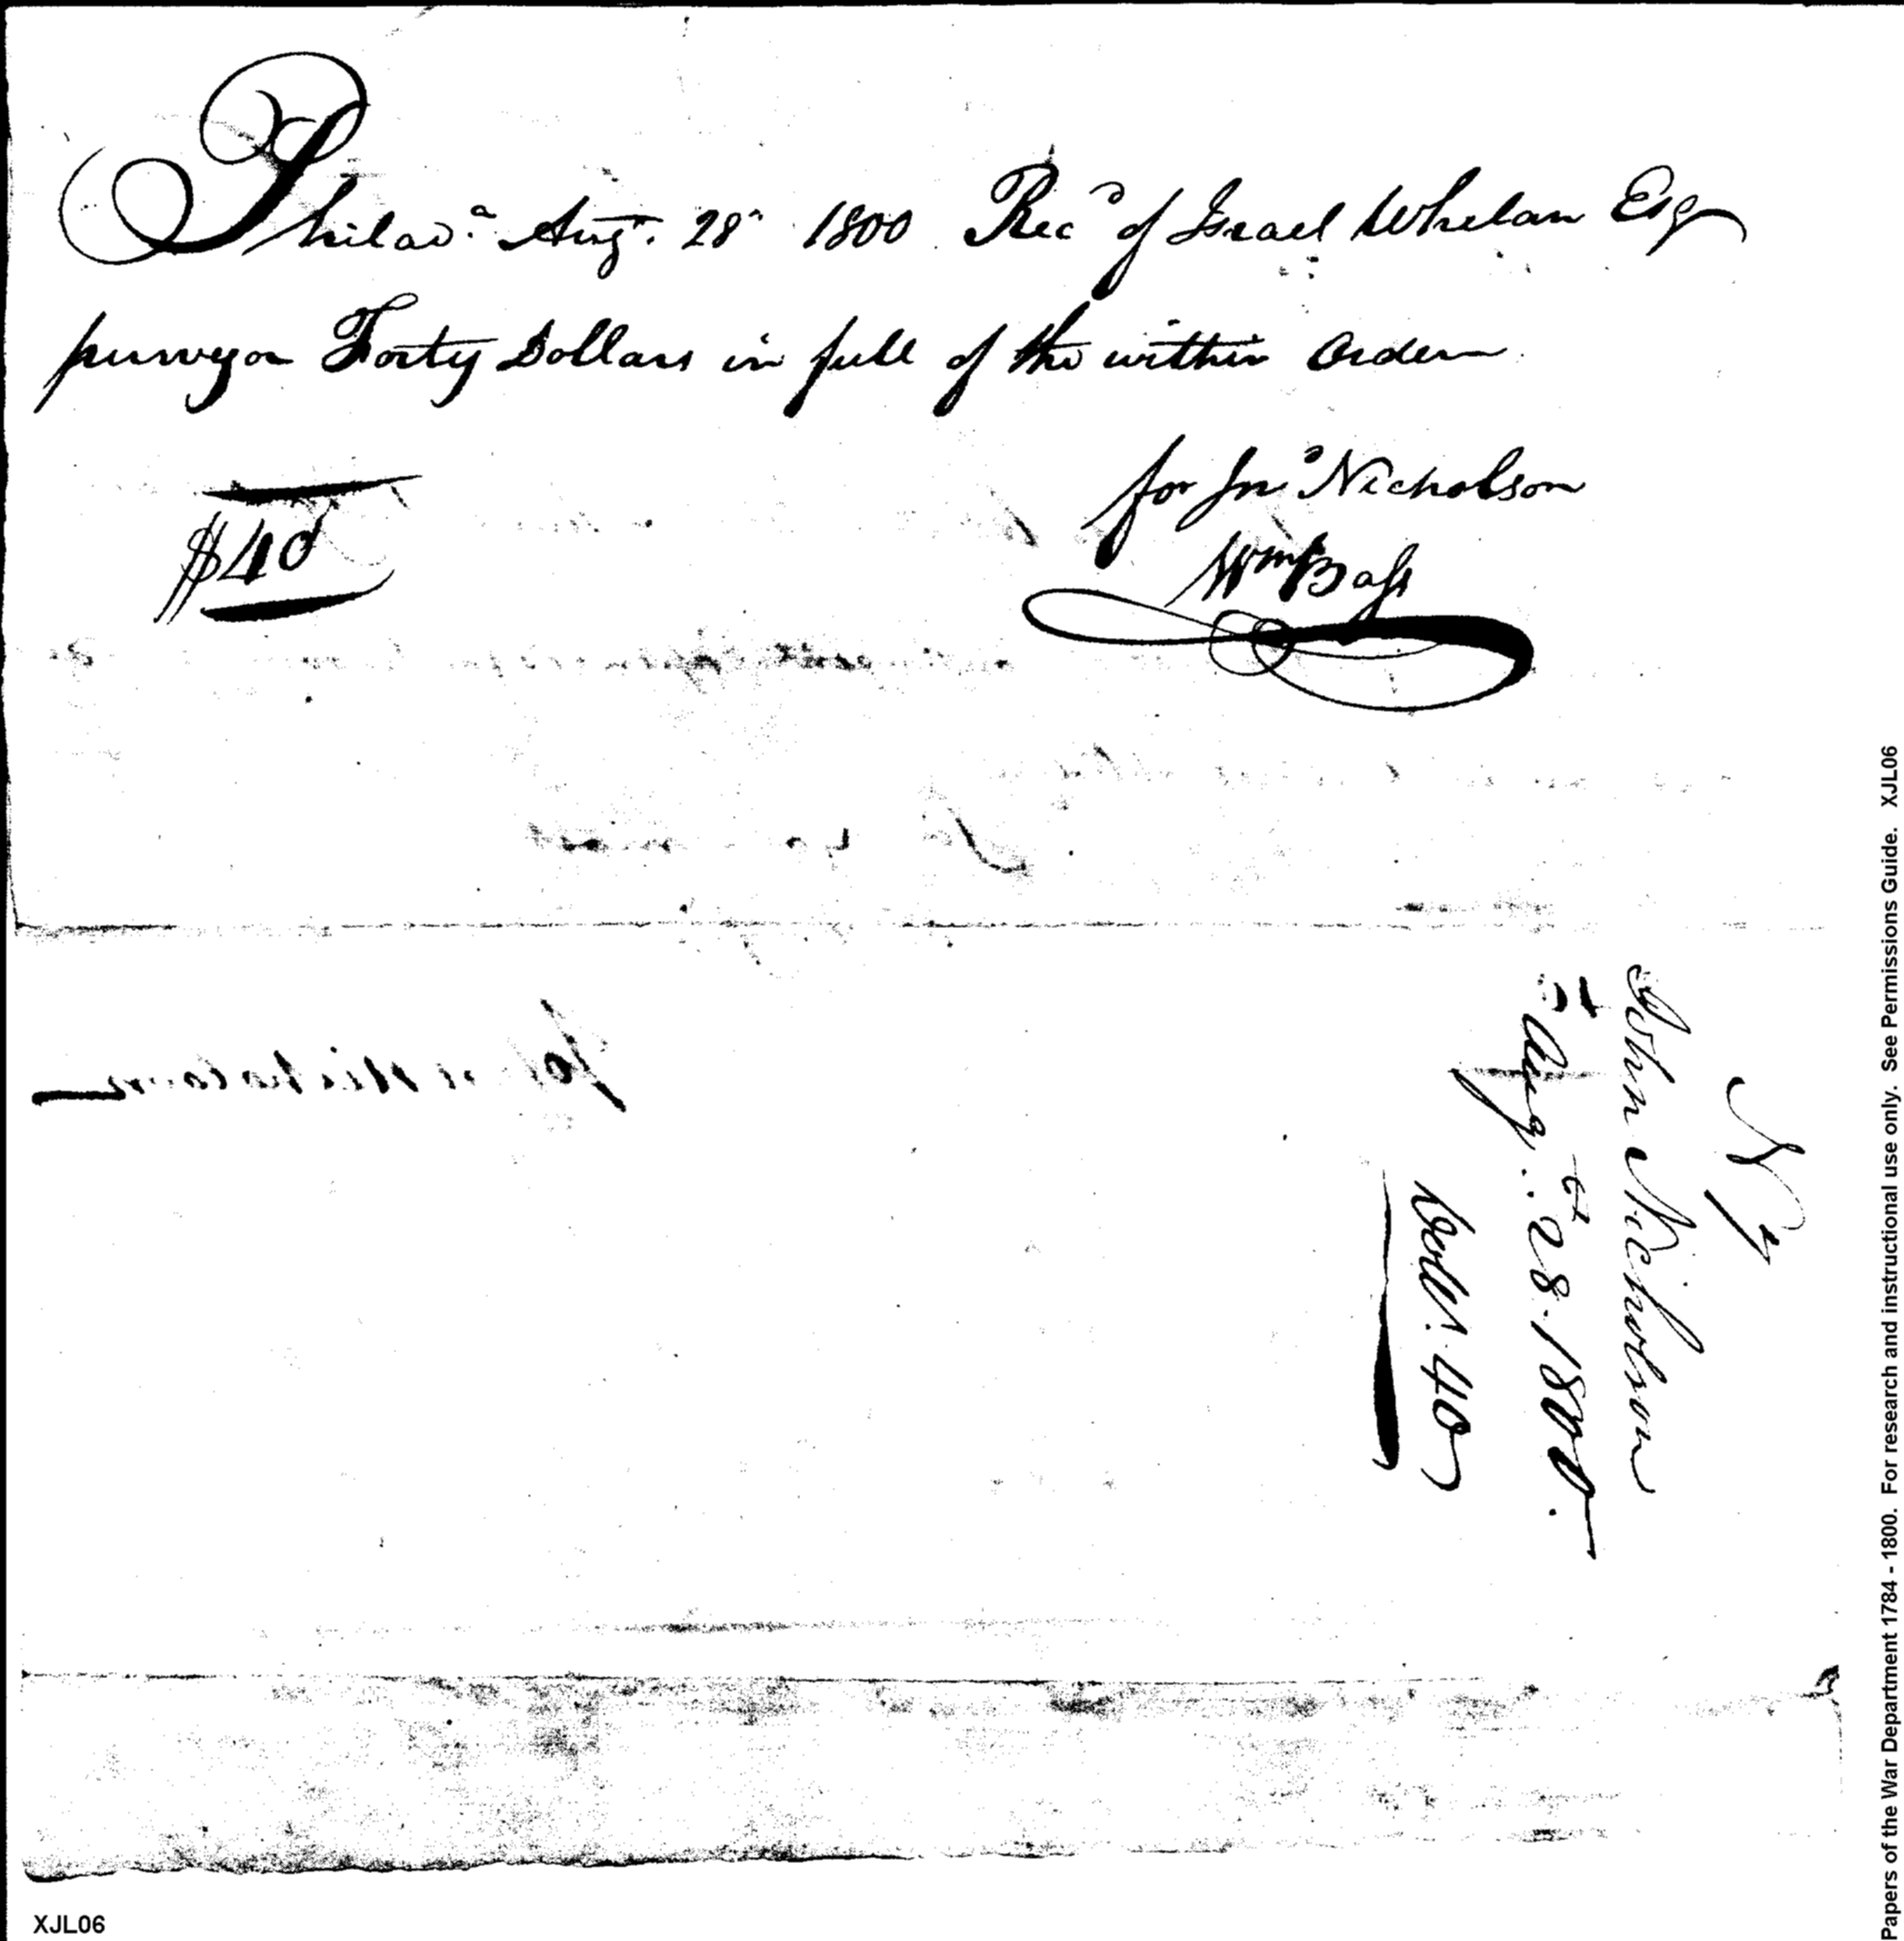 Philad.ª Aug.t 28th 1800 Rec.d of Israel Whelan Esq
purveyor Forty Dollars in full of the within Order
for Jn.o Nicholson
$40
Wm Bass
John Nicholson
Aug.t 28. 1800.
Doll.s 40
XJL06
Papers of the War Department 1784 - 1800. For research and instructional use only. See Permissions Guide. XJL06